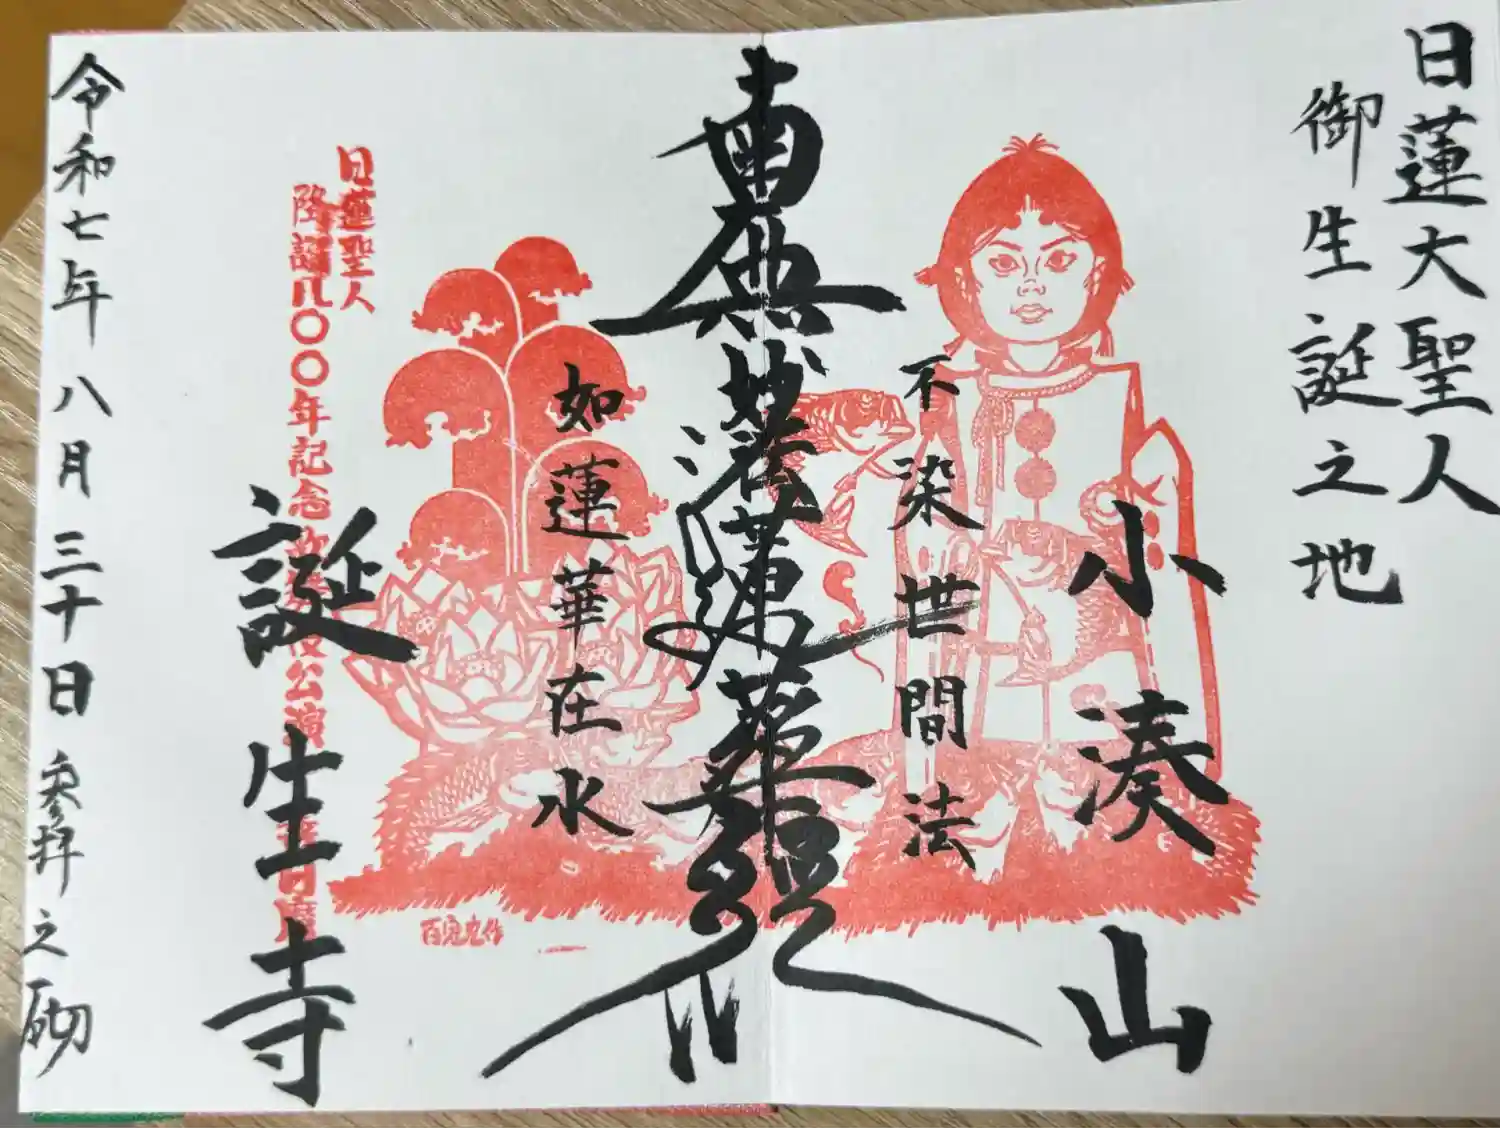 日蓮大聖人
御生誕之地
小湊山
不染世間法
南無妙法蓮華經
如蓮華在水
誕生寺
日蓮聖人
降誕八〇〇年記念
公演
令和七年八月三十日参拝之砌